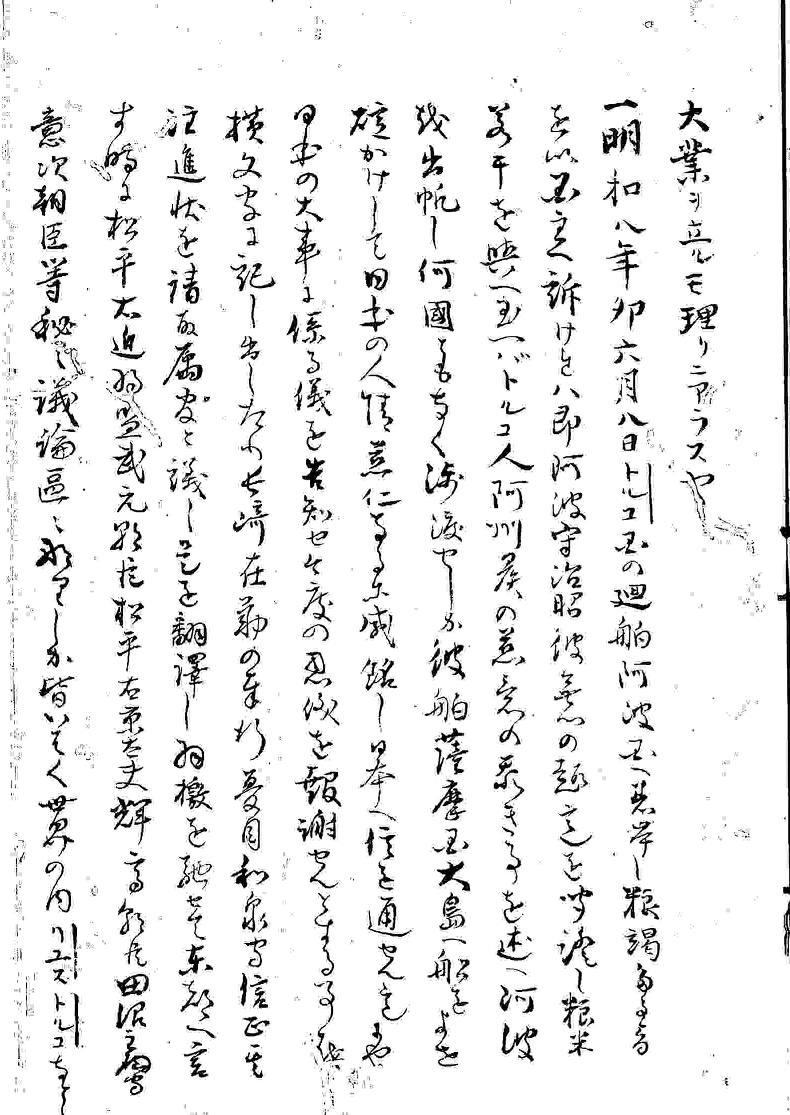 大業ヲ立ルモ理リニアラスや
一明和八年卯六月八日トルコ国の廻舶阿波国へ着岸し粮竭たる旨
を以国主へ訴けれハ即阿波守治昭彼無恙の趣意を聞流し粮米
若干を與へ玉へバトルコ人阿州侯の恵の忝きを述へ阿波
を出帆し何國ともなく渡せしか彼舶薩摩国大島へ船をよせ
碇かけして日本の人情慈仁なるに感銘し日本へ信を通せん
日本の大事に係る儀を告知せ度の恩儀を報謝せんとする
横文字に記し出したり長崎在勤の奉行夏目和泉守信政
注進状を請取属吏と議し是を翻譯し羽檄を馳せ東都へ言
す時に松平右近将監武元朝臣松平右京大夫輝高朝臣田沼主殿
意次朝臣等秘之議論區々なりしか皆いはく世界の内リユストルコ